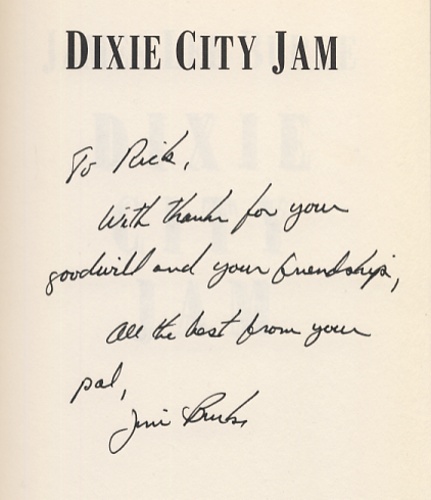 DIXIE CITY JAM
To Rick,
With thanks for your
goodwill and your friendship,
All the best from your
pal,
Jim Burke